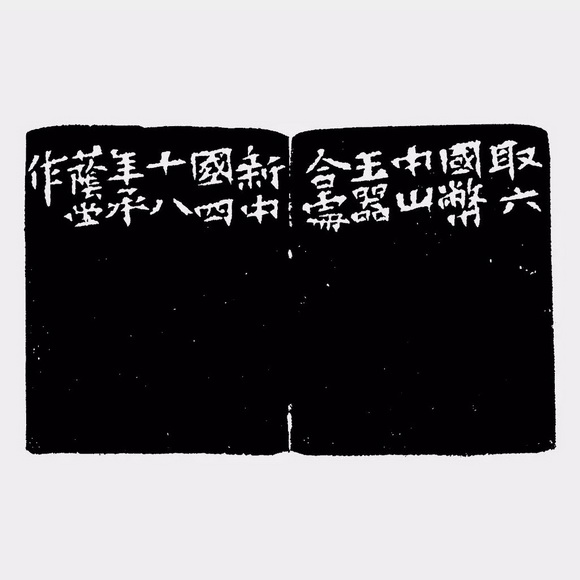 取六
國幣
中山
王器
合需
新中
國四
十八
年承
蔭堂
作